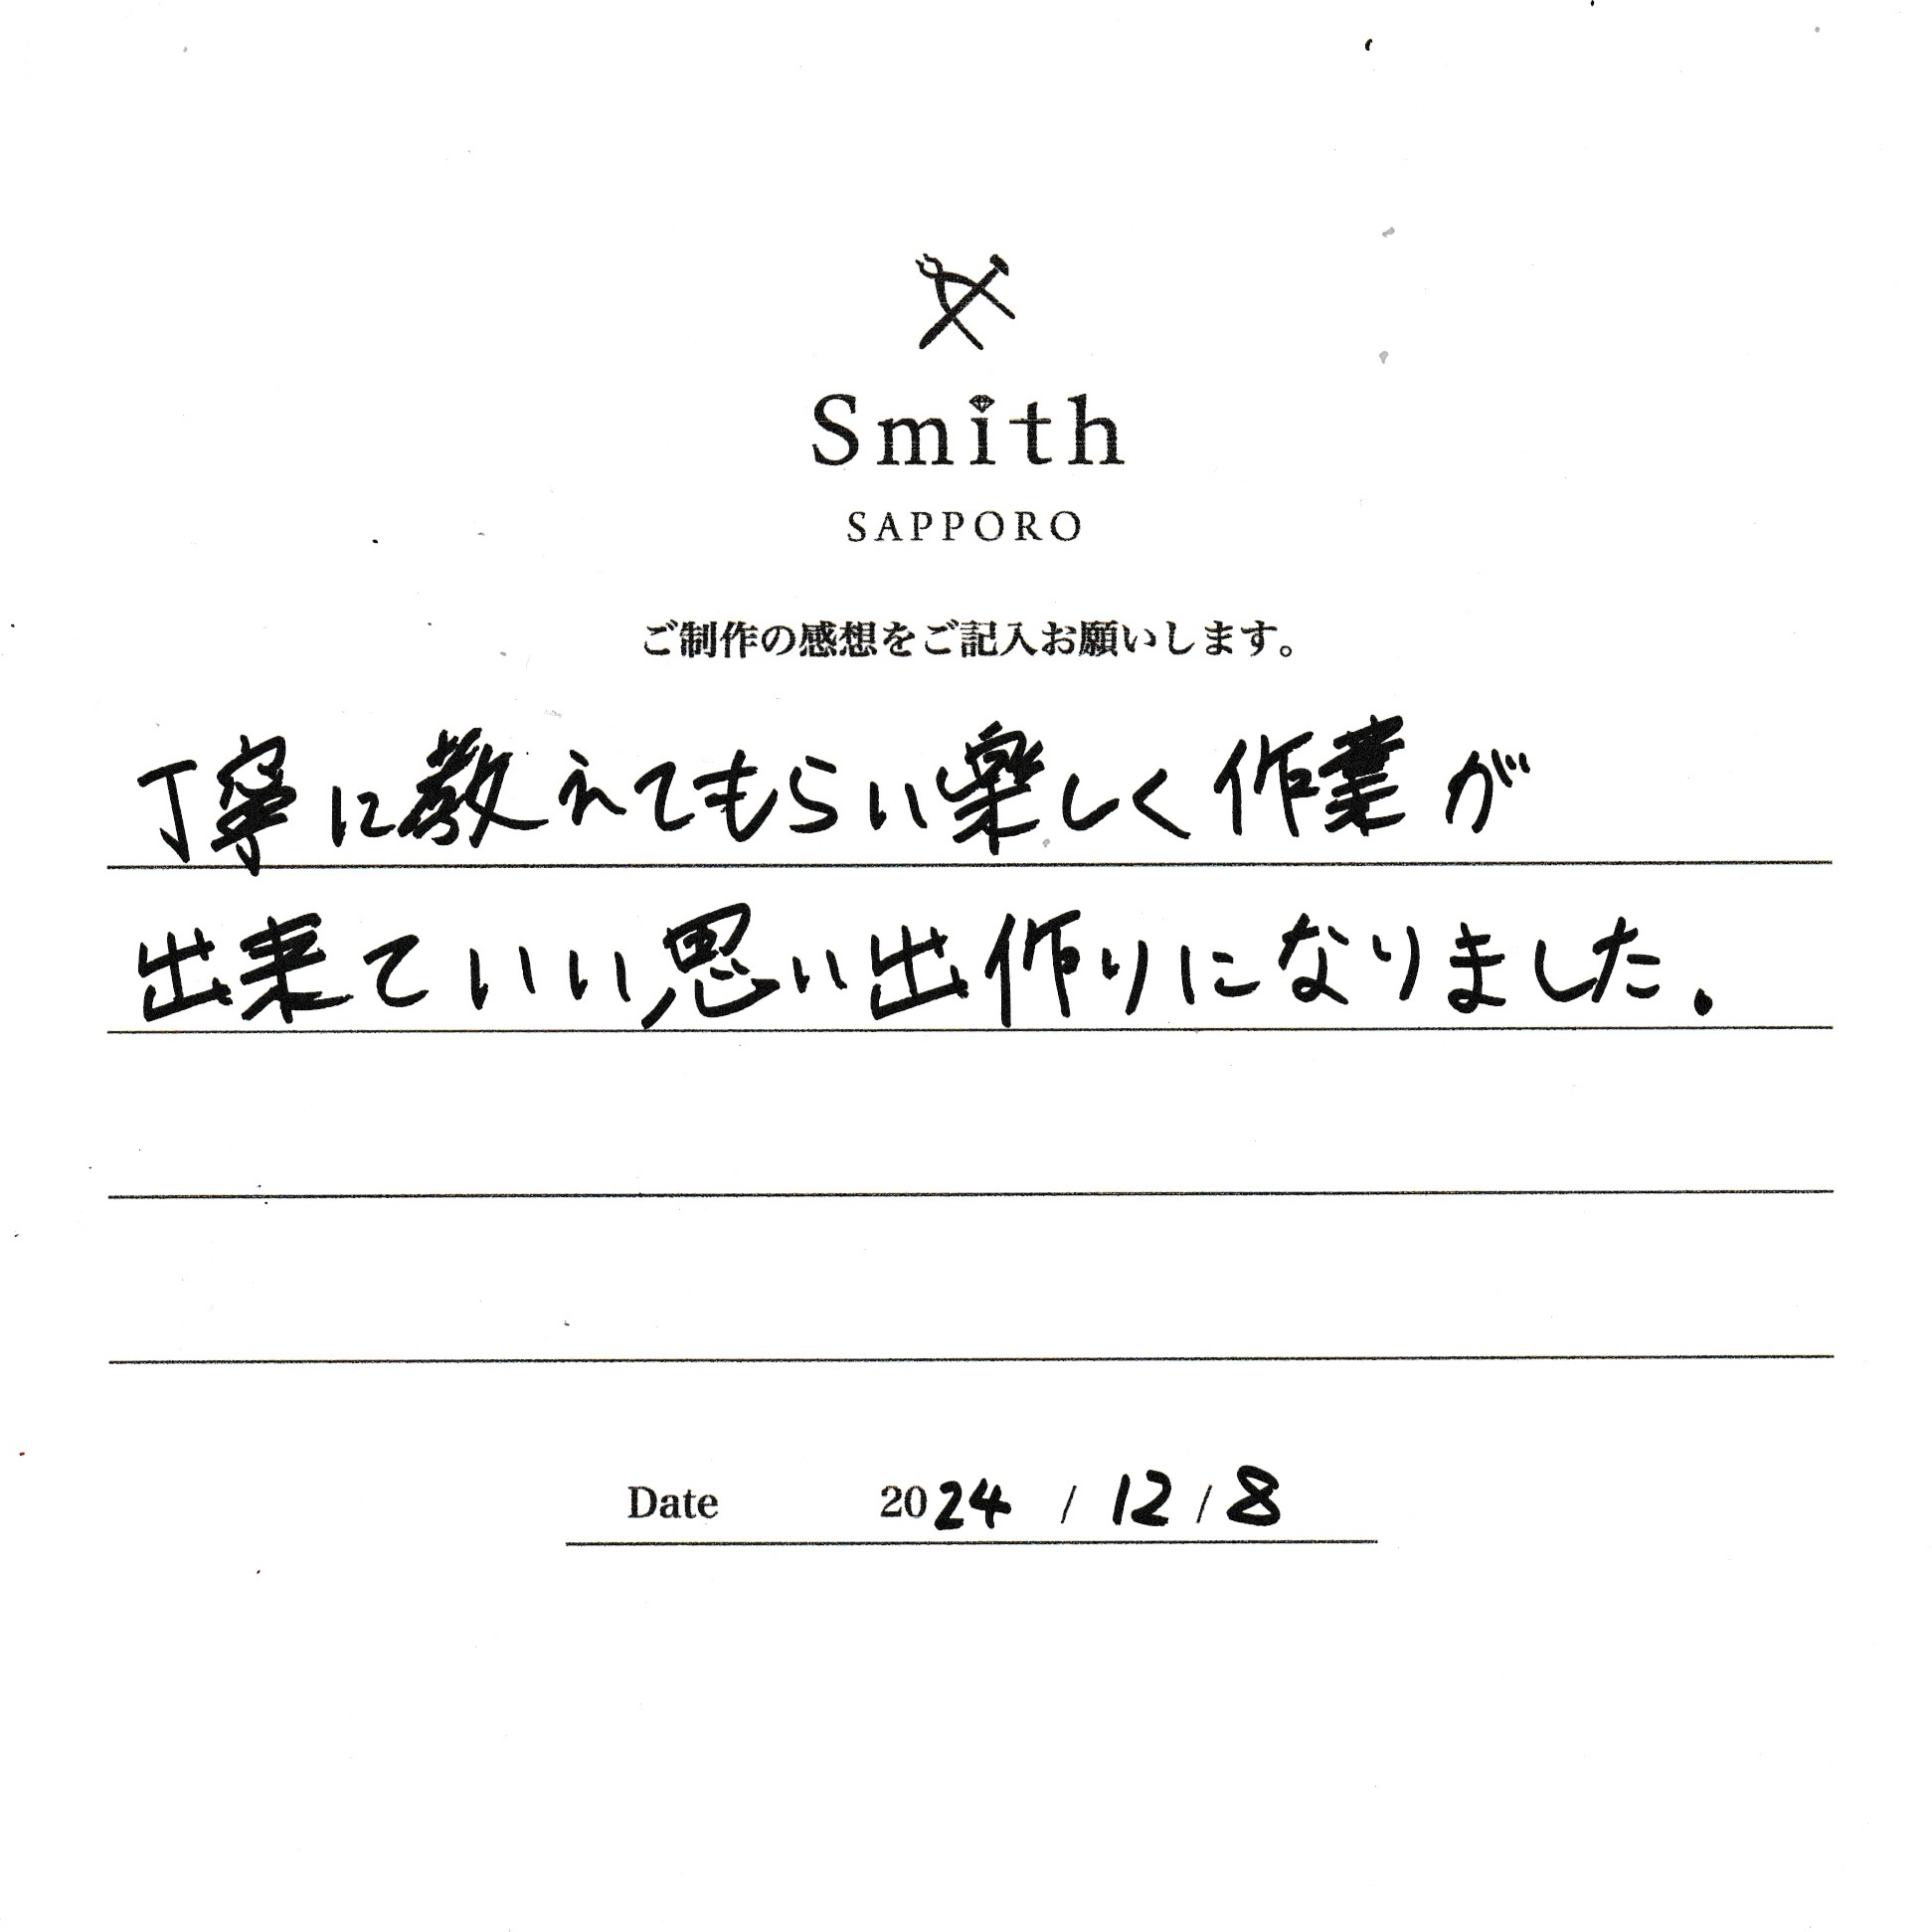 Smith
SAPPORO
ご制作の感想をご記入お願いします。
丁寧に教えてもらい楽しく作業が
出来ていい思い出作りになりました.
Date 2024 / 12 / 8